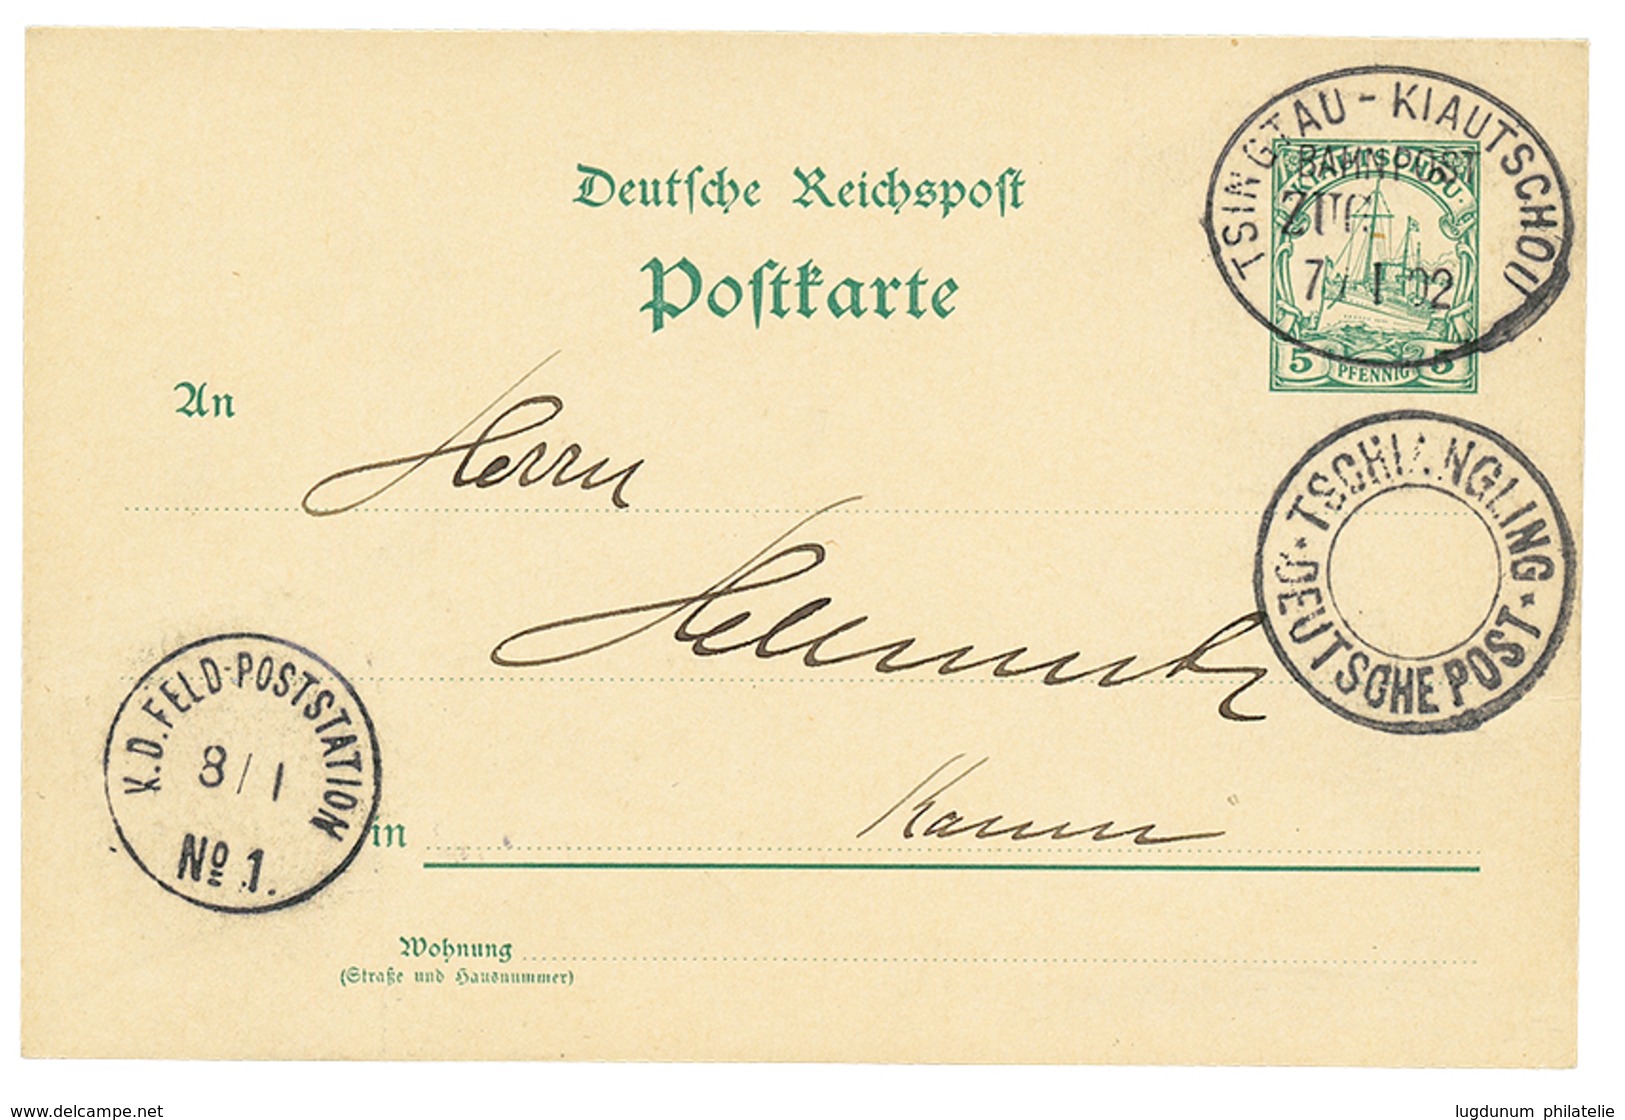 TSINGTAU - KIAUTSCHOU
BAHNPOST
ZUG
7/1 02
KIAUTSCHOU
5 PFENNIG 5
Deutsche Reichspost
Postkarte
An
Herrn
TSCHIANGLING
DEUTSCHE POST
K.D. FELD-POSTSTATION
8/1
No 1.
in
Wohnung
(Straße und Hausnummer)
www.delcampe.net
lugdunum philatelie